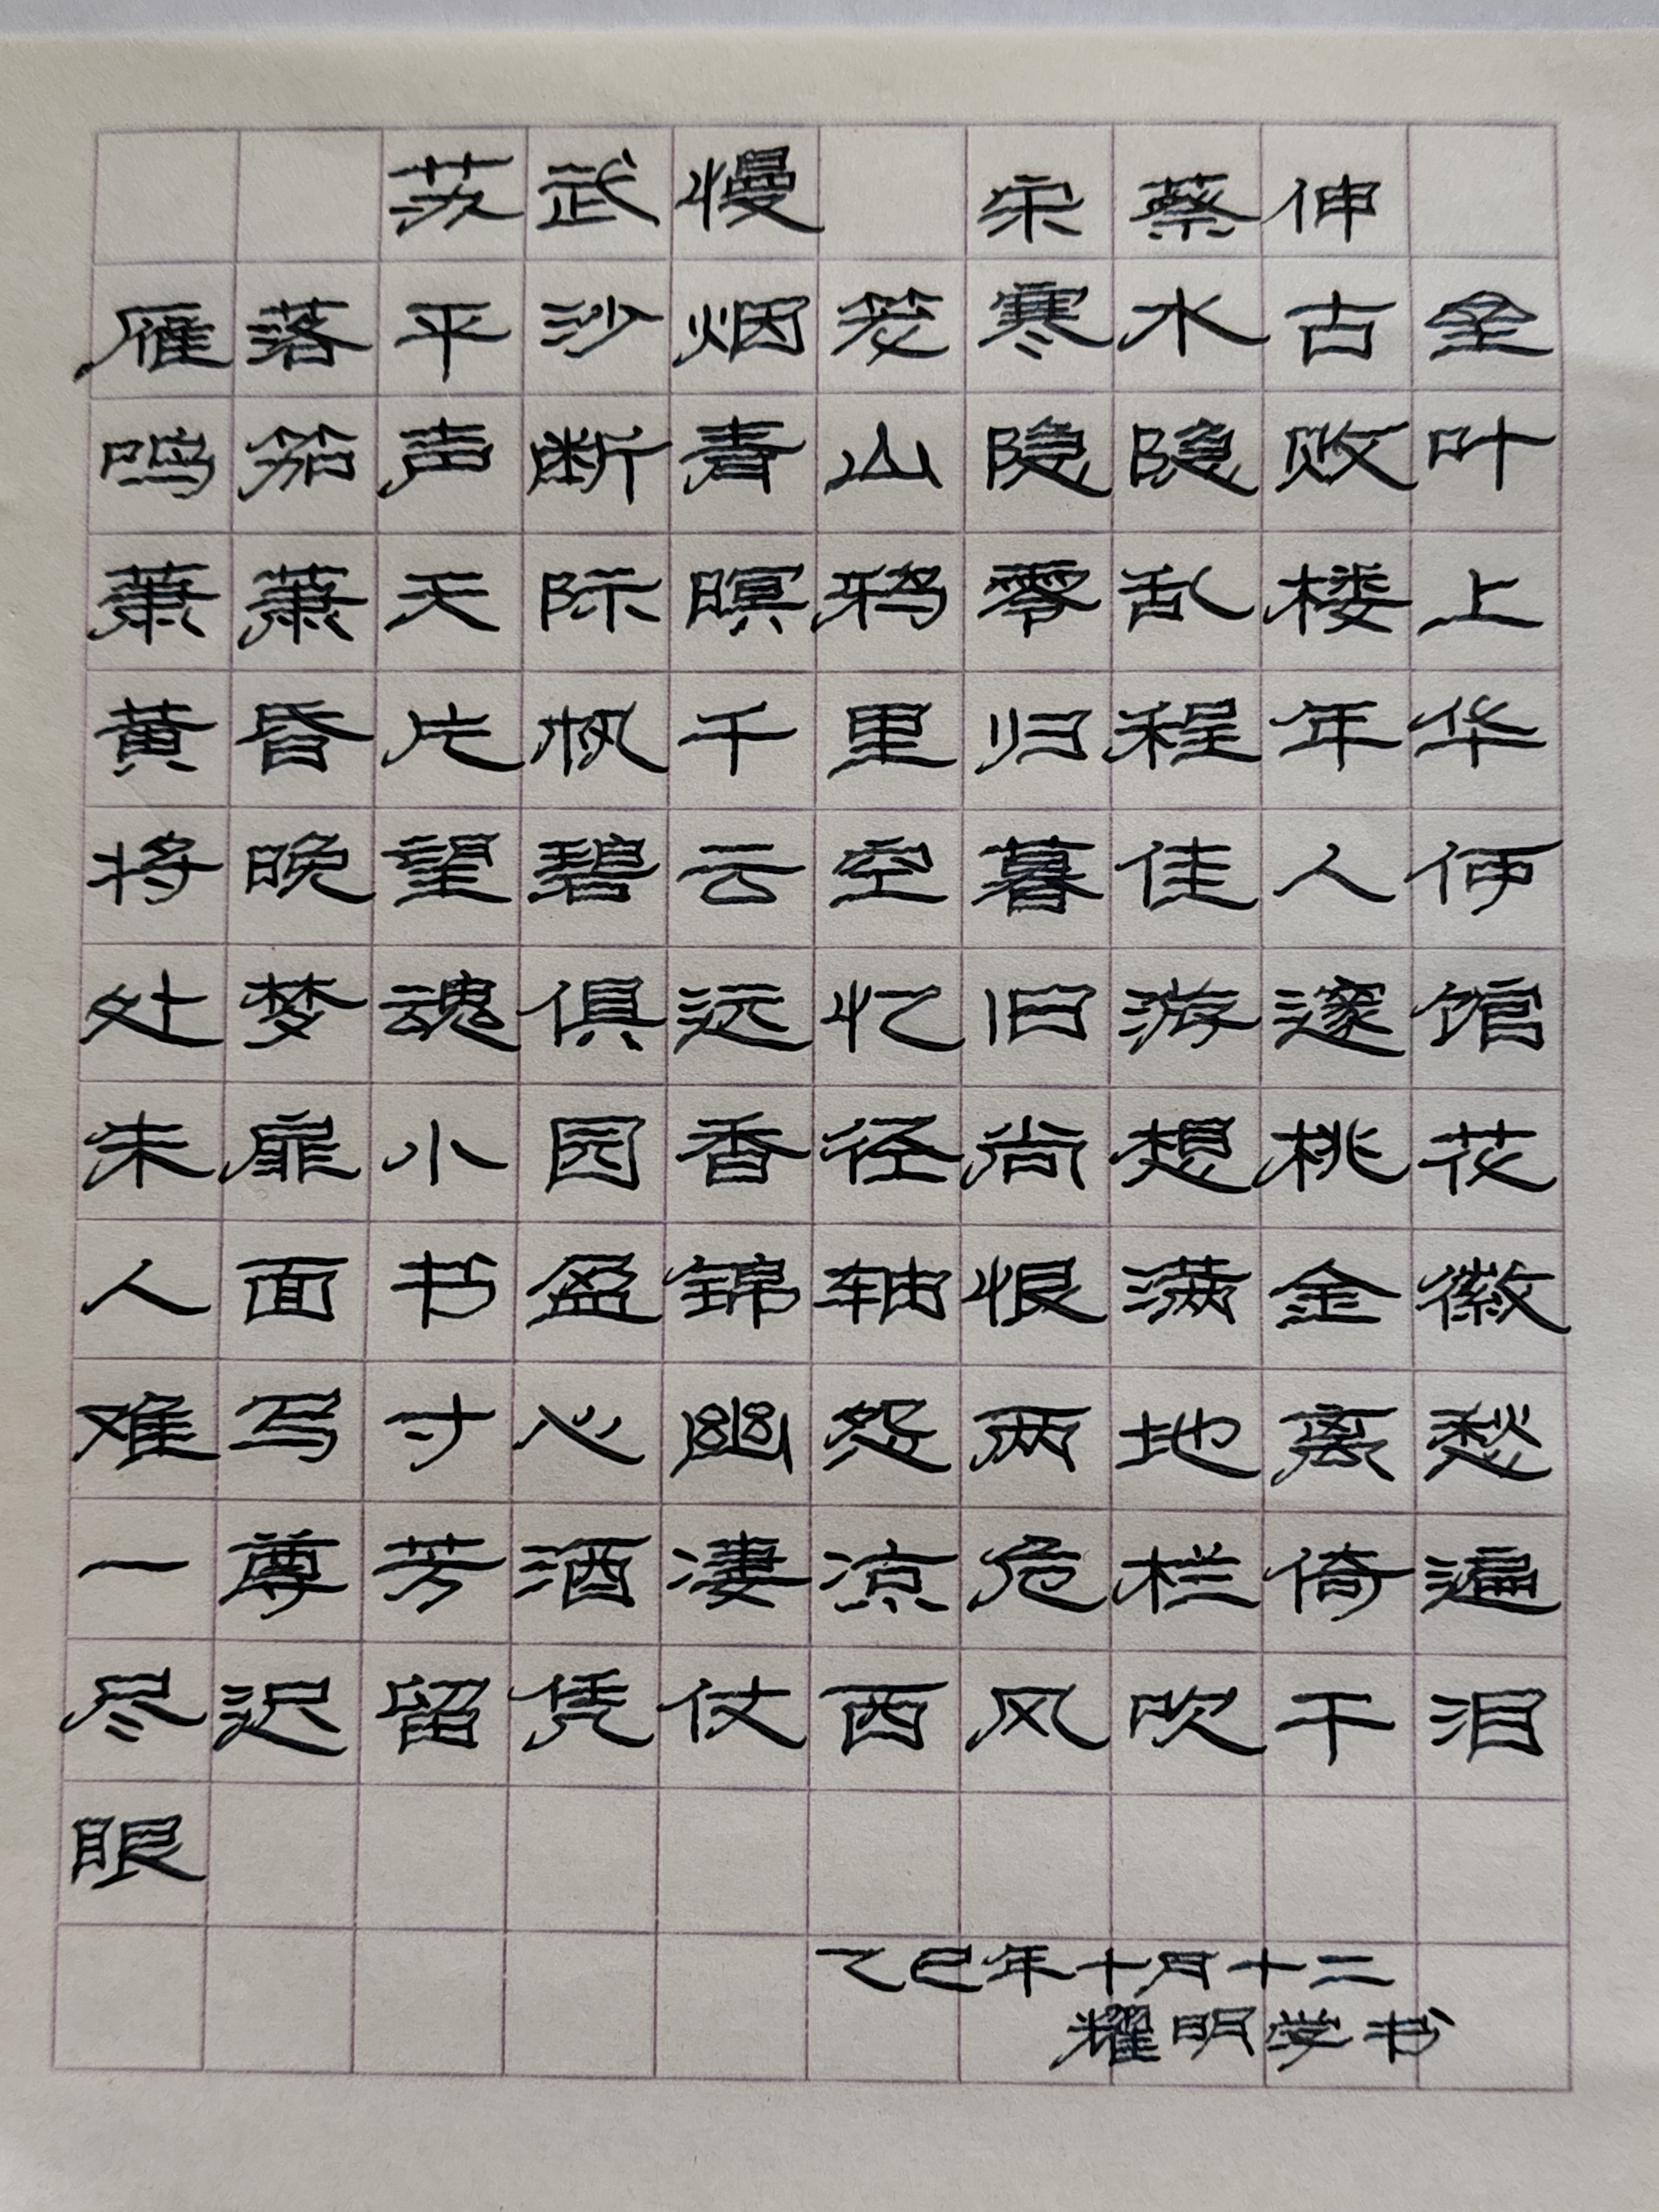 苏武慢 宋蔡伸
雁落平沙烟笼寒水古垒
鸣笳声断青山隐隐败叶
萧萧天际暝鸦零乱楼上
黄昏片帆千里归程年华
将晚望碧云空暮佳人何
处梦魂俱远忆旧游邃馆
朱扉小园香径尚想桃花
人面书盈锦轴恨满金徽
难写寸心幽怨两地离愁
一尊芳酒凄凉危栏倚遍
尽迟留凭仗西风吹干泪
眼
乙巳年十月十二
耀明学书